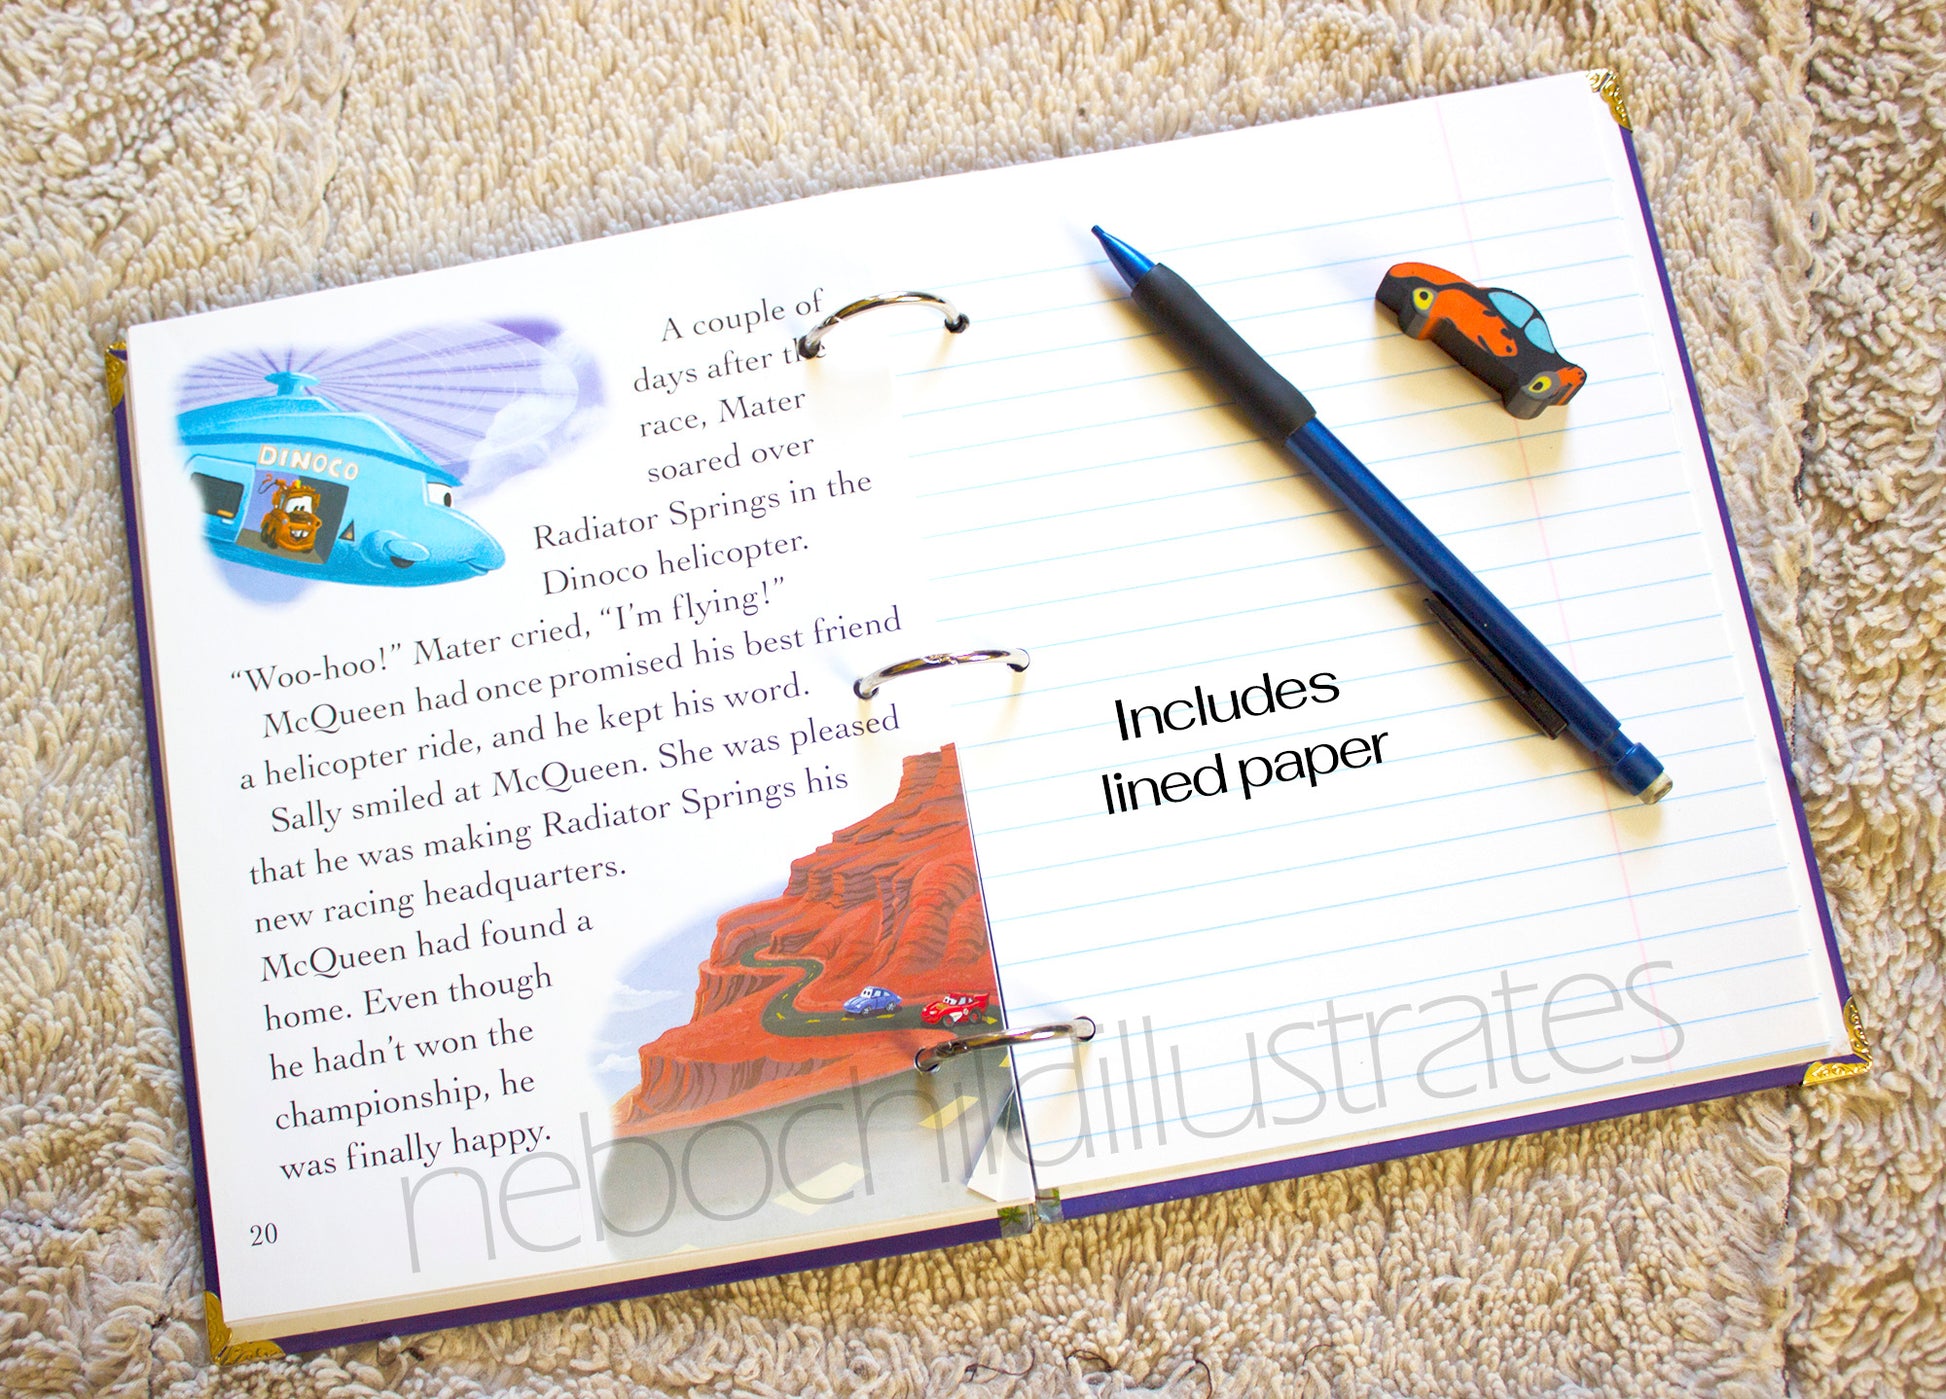 DINOCO
A couple of
days after the
race, Mater
soared over
Radiator Springs in the
Dinoco helicopter.
“Woo-hoo!” Mater cried, “I’m flying!”
McQueen had once promised his best friend
a helicopter ride, and he kept his word.
Sally smiled at McQueen. She was pleased
that he was making Radiator Springs his
new racing headquarters.
McQueen had found a
home. Even though
he hadn’t won the
championship, he
was finally happy.
20
Includes
lined paper
nebochildillustrates